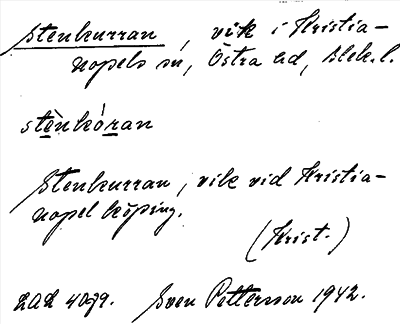 Stenkurran, vik i Kristia-
nopels sn, Östra hd, Blek. l.
stènkóran
Stenkurran, vik vid Kristia-
nopel köping.
(Krist.)
LAL 4079. Sven Pettersson 1942.